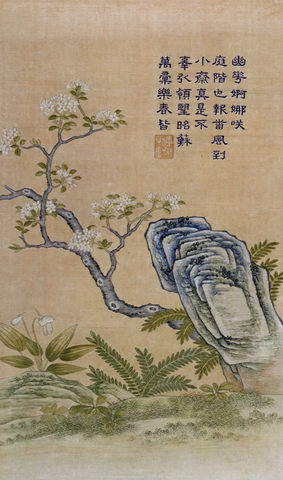 幽婀娜咲
庭階也報番風到
小齋真是不
辜引領望昭蘇
萬彙樂春皆